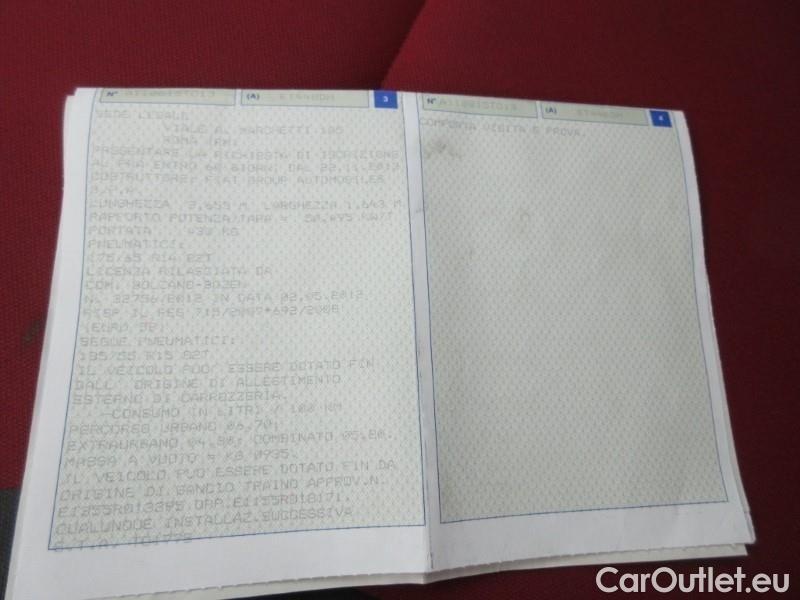 N° (A) 3
SEDE LEGALE
VIALE A. MARCHETTI 105
ROMA (RM)
PRESENTARE LA RICHIESTA DI ISCRIZIONE
AL PRA ENTRO 60 GIORNI DAL 22.11.2012
COSTRUTTORE: FIAT GROUP AUTOMOBILES
S.P.A.
LUNGHEZZA 3,653 M. LARGHEZZA 1,643 M.
RAPPORTO POTENZA/TARA = 50,495 KW/T
PORTATA 430 KG
PNEUMATICI:
175/65 R14 82T
LICENZA RILASCIATA DA
COM. BOLZANO-BOZEN
N. 32756/2012 IN DATA 02.05.2012
RISP IL REG 715/2007*692/2008
(EURO 5B)
SEGUE PNEUMATICI:
185/55 R15 82T
IL VEICOLO PUO' ESSERE DOTATO FIN
DALL' ORIGINE DI ALLESTIMENTO
ESTERNO DI CARROZZERIA.
--CONSUMO IN LITRI / 100 KM
PERCORSO URBANO 06,70;
EXTRAURBANO 04,30; COMBINATO 05,20.
MASSA A VUOTO = KG 0935.
IL VEICOLO PUO' ESSERE DOTATO FIN DA
ORIGINE DI GANCIO TRAINO APPROV.N.
QUALUNQUE INSTALLAZ.SUCCESSIVA
N° (A) 4
COMPORTA VISITA E PROVA.
CarOutlet.eu